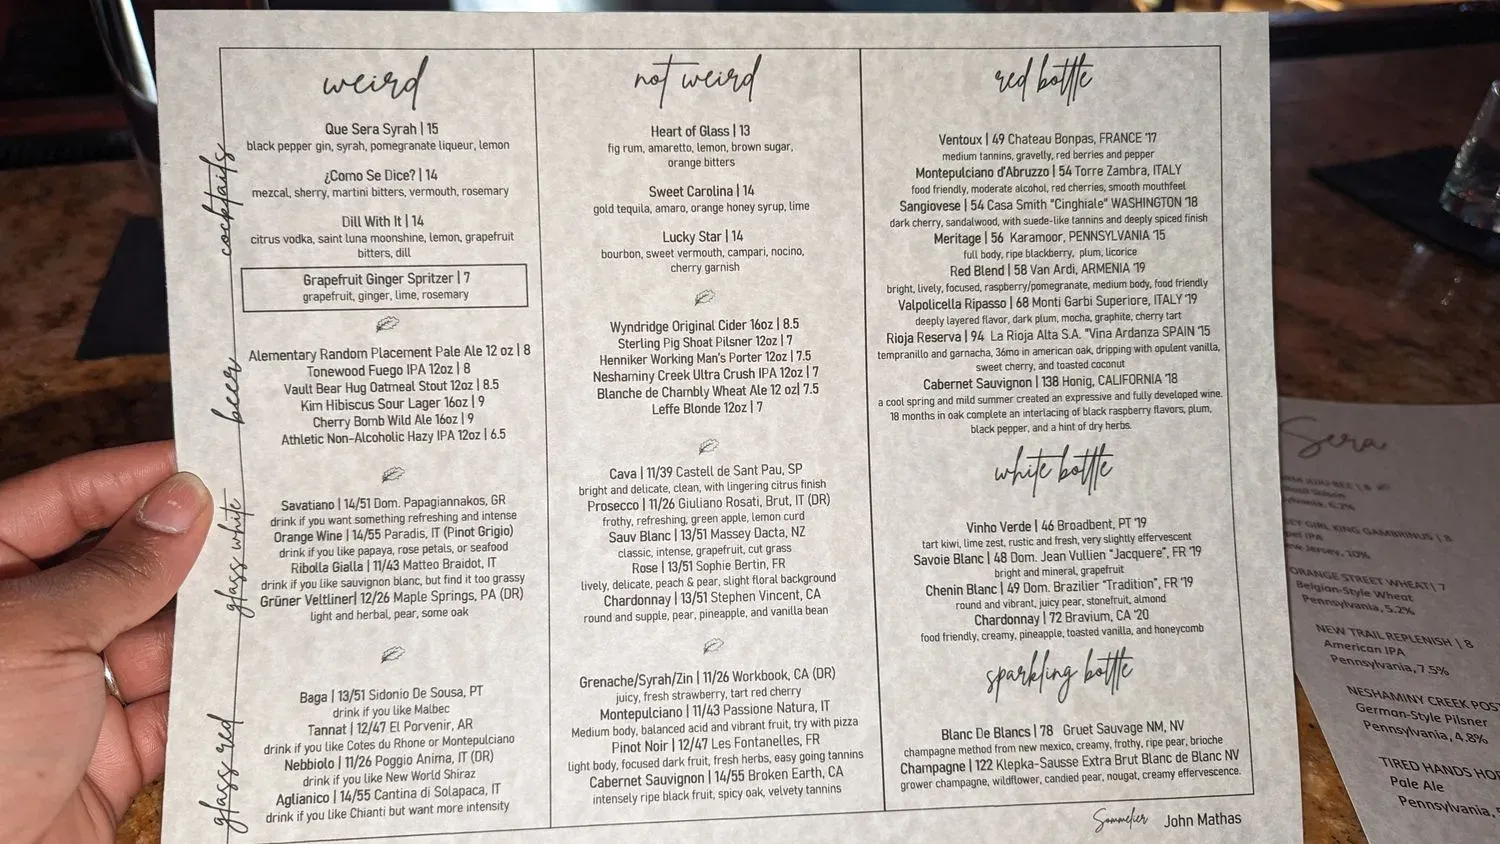 cocktails
beer
glass white
glass red
weird
Que Sera Syrah | 15
black pepper gin, syrah, pomegranate liqueur, lemon
¿Como Se Dice? | 14
mezcal, sherry, martini bitters, vermouth, rosemary
Dill With It | 14
citrus vodka, saint luna moonshine, lemon, grapefruit
bitters, dill
Grapefruit Ginger Spritzer | 7
grapefruit, ginger, lime, rosemary
Alementary Random Placement Pale Ale 12 oz | 8
Tonewood Fuego IPA 12oz | 8
Vault Bear Hug Oatmeal Stout 12oz | 8.5
Kim Hibiscus Sour Lager 16oz | 9
Cherry Bomb Wild Ale 16oz | 9
Athletic Non-Alcoholic Hazy IPA 12oz | 6.5
Savatiano | 14/51 Dom. Papagiannakos, GR
drink if you want something refreshing and intense
Orange Wine | 14/55 Paradis, IT (Pinot Grigio)
drink if you like papaya, rose petals, or seafood
Ribolla Gialla | 11/43 Matteo Braidot, IT
drink if you like sauvignon blanc, but find it too grassy
Grüner Veltliner| 12/26 Maple Springs, PA (DR)
light and herbal, pear, some oak
Baga | 13/51 Sidonio De Sousa, PT
drink if you like Malbec
Tannat | 12/47 El Porvenir, AR
drink if you like Cotes du Rhone or Montepulciano
Nebbiolo | 11/26 Poggio Anima, IT (DR)
drink if you like New World Shiraz
Aglianico | 14/55 Cantina di Solapaca, IT
drink if you like Chianti but want more intensity
not weird
Heart of Glass | 13
fig rum, amaretto, lemon, brown sugar,
orange bitters
Sweet Carolina | 14
gold tequila, amaro, orange honey syrup, lime
Lucky Star | 14
bourbon, sweet vermouth, campari, nocino,
cherry garnish
Wyndridge Original Cider 16oz | 8.5
Sterling Pig Shoat Pilsner 12oz | 7
Henniker Working Man's Porter 12oz | 7.5
Neshaminy Creek Ultra Crush IPA 12oz | 7
Blanche de Chambly Wheat Ale 12 oz| 7.5
Leffe Blonde 12oz | 7
Cava | 11/39 Castell de Sant Pau, SP
bright and delicate, clean, with lingering citrus finish
Prosecco | 11/26 Giuliano Rosati, Brut, IT (DR)
frothy, refreshing, green apple, lemon curd
Sauv Blanc | 13/51 Massey Dacta, NZ
classic, intense, grapefruit, cut grass
Rose | 13/51 Sophie Bertin, FR
lively, delicate, peach & pear, slight floral background
Chardonnay | 13/51 Stephen Vincent, CA
round and supple, pear, pineapple, and vanilla bean
Grenache/Syrah/Zin | 11/26 Workbook, CA (DR)
juicy, fresh strawberry, tart red cherry
Montepulciano | 11/43 Passione Natura, IT
Medium body, balanced acid and vibrant fruit, try with pizza
Pinot Noir | 12/47 Les Fontanelles, FR
light body, focused dark fruit, fresh herbs, easy going tannins
Cabernet Sauvignon | 14/55 Broken Earth, CA
intensely ripe black fruit, spicy oak, velvety tannins
red bottle
Ventoux | 49 Chateau Bonpas, FRANCE '17
medium tannins, gravelly, red berries and pepper
Montepulciano d'Abruzzo | 54 Torre Zambra, ITALY
food friendly, moderate alcohol, red cherries, smooth mouthfeel
Sangiovese | 54 Casa Smith "Cinghiale" WASHINGTON '18
dark cherry, sandalwood, with suede-like tannins and deeply spiced finish
Meritage | 56 Karamoor, PENNSYLVANIA '15
full body, ripe blackberry, plum, licorice
Red Blend | 58 Van Ardi, ARMENIA '19
bright, lively, focused, raspberry/pomegranate, medium body, food friendly
Valpolicella Ripasso | 68 Monti Garbi Superiore, ITALY '19
deeply layered flavor, dark plum, mocha, graphite, cherry tart
Rioja Reserva | 94 La Rioja Alta S.A. "Vina Ardanza SPAIN '15
tempranillo and garnacha, 36mo in american oak, dripping with opulent vanilla,
sweet cherry, and toasted coconut
Cabernet Sauvignon | 138 Honig, CALIFORNIA '18
a cool spring and mild summer created an expressive and fully developed wine.
18 months in oak complete an interlacing of black raspberry flavors, plum,
black pepper, and a hint of dry herbs.
white bottle
Vinho Verde | 46 Broadbent, PT '19
tart kiwi, lime zest, rustic and fresh, very slightly effervescent
Savoie Blanc | 48 Dom. Jean Vullien "Jacquere", FR '19
bright and mineral, grapefruit
Chenin Blanc | 49 Dom. Brazilier "Tradition", FR '19
round and vibrant, juicy pear, stonefruit, almond
Chardonnay | 72 Bravium, CA '20
food friendly, creamy, pineapple, toasted vanilla, and honeycomb
sparkling bottle
Blanc De Blancs | 78 Gruet Sauvage NM, NV
champagne method from new mexico, creamy, frothy, ripe pear, brioche
Champagne | 122 Klepka-Sausse Extra Brut Blanc de Blanc NV
grower champagne, wildflower, candied pear, nougat, creamy effervescence.
Sommelier John Mathas
Sera
GIRL KING GAMBRINUS | 8
IPA
Jersey, 10%
ORANGE STREET WHEAT| 7
Belgian-Style Wheat
Pennsylvania, 5.2%
NEW TRAIL REPLENISH | 8
American IPA
Pennsylvania, 7.5%
NESHAMINY CREEK
German-Style Pilsner
Pennsylvania, 4.8%
TIRED HANDS
Pale Ale
Pennsylvania,